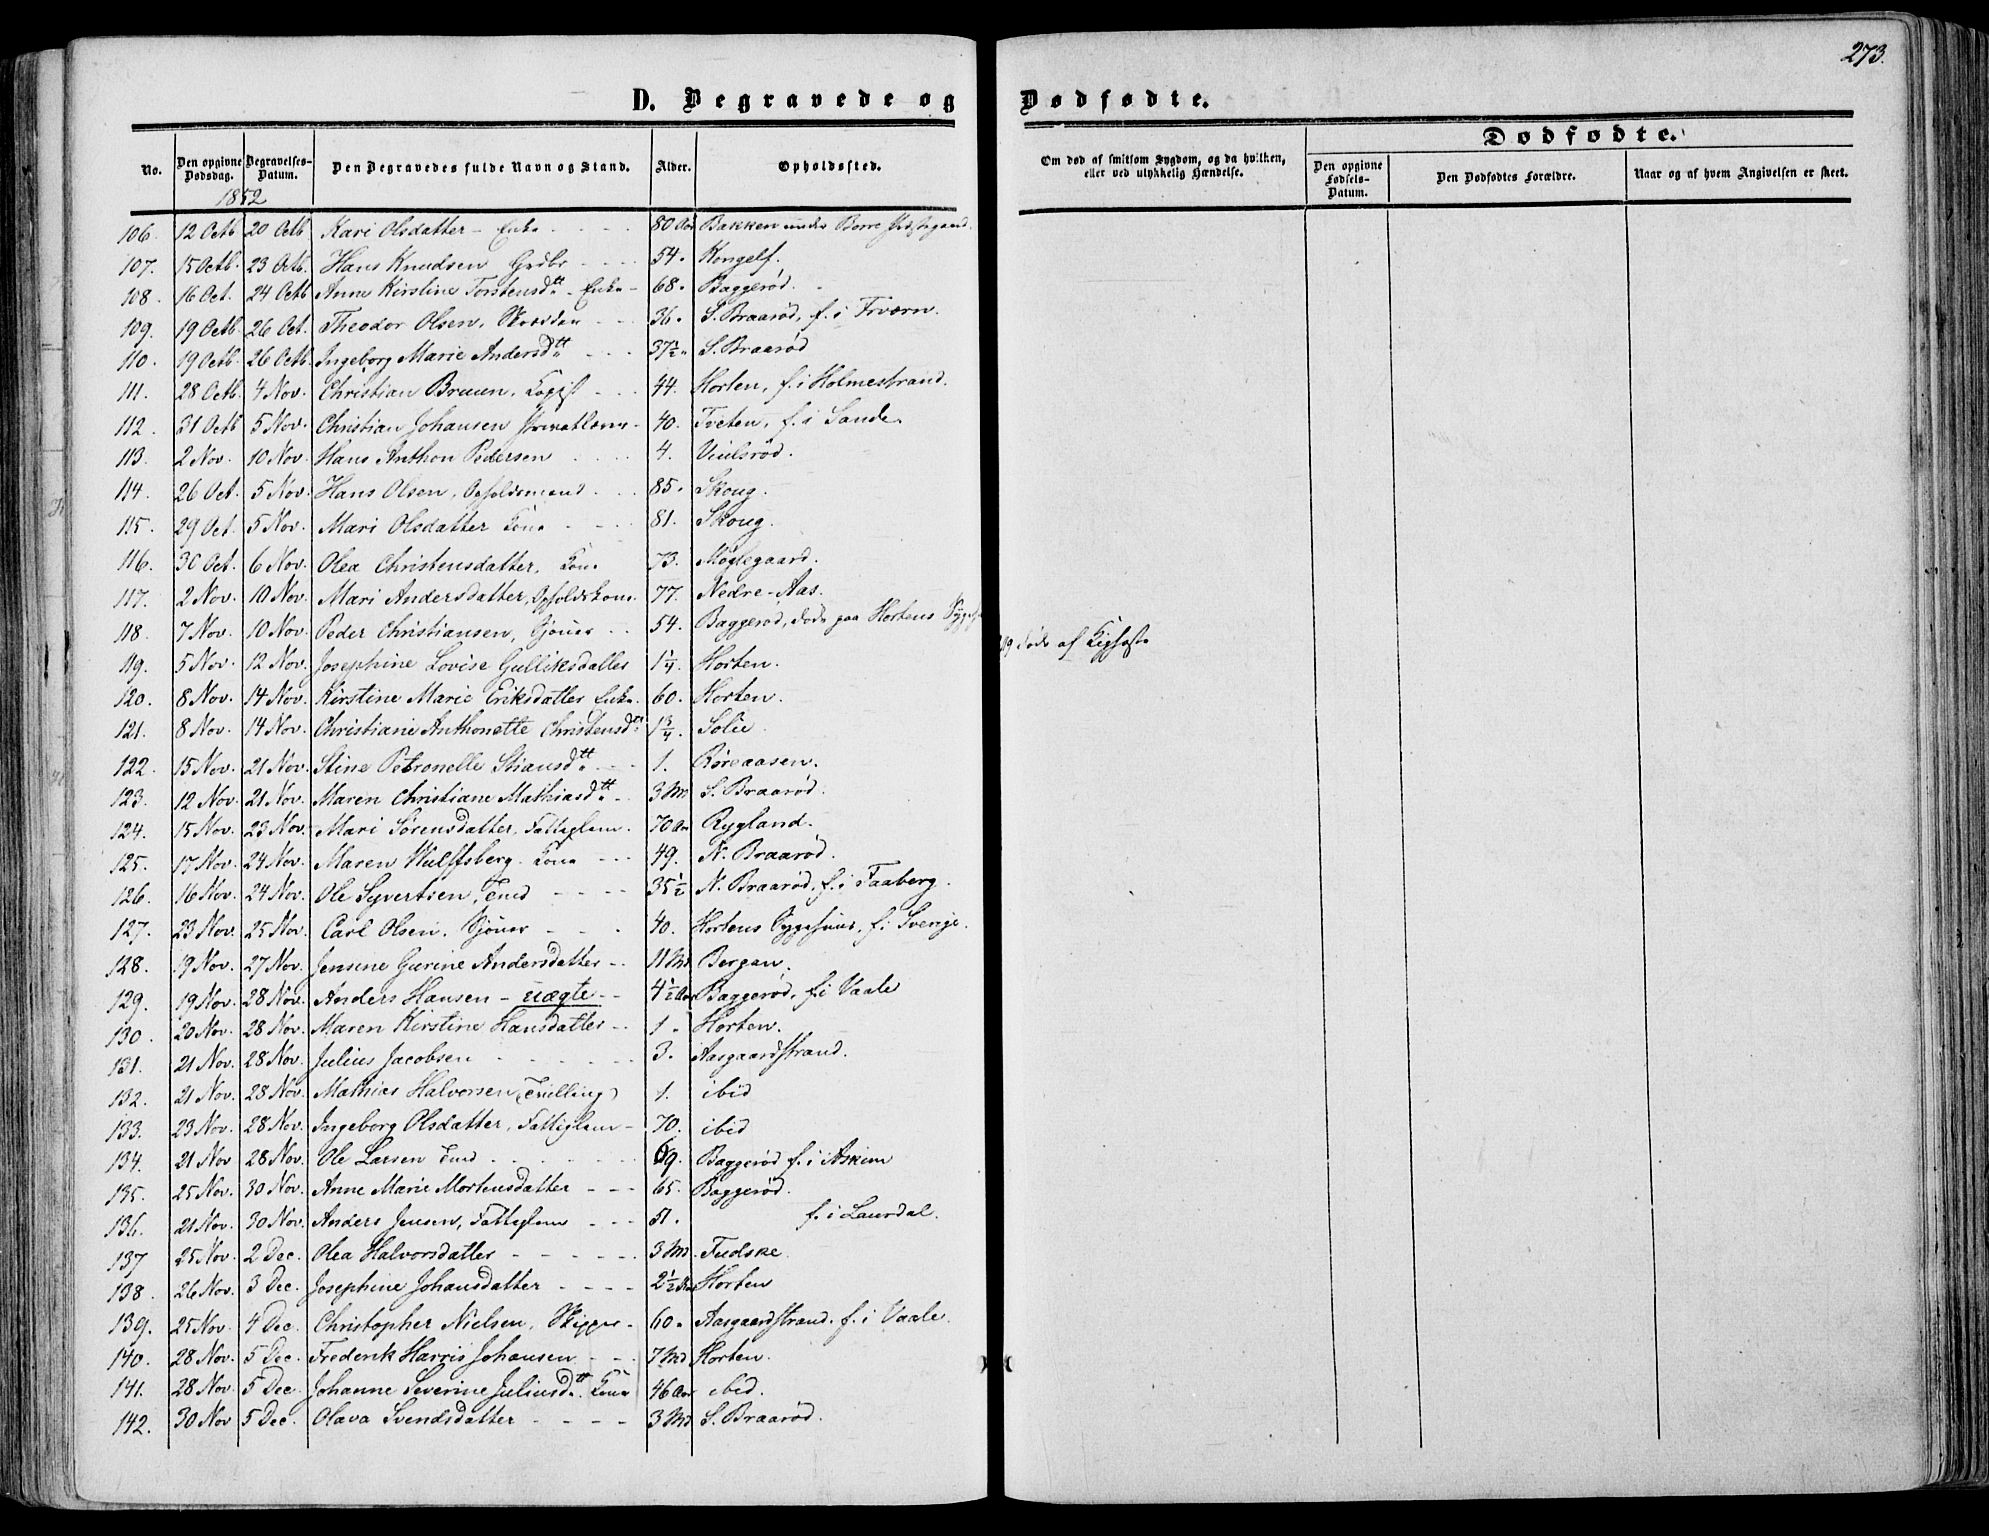 273.
D. Begravede og Dødfødte.
Dødfødte.
No. Den opgivne Dødsdag. Begravelses-Datum. Den Begravedes fulde Navn og Stand. Alder. Opholdssted. Om død af smitsom Sygdom, og da hvilken, eller ved ulykkelig Hændelse. Den opgivne Fødsels-Datum. Den Dødfødtes Forældre. Naar og af hvem Angivelsen er skeet.
1852
106. 12 Octb 20 Octb. Kari Olsdatter - Enke 80 Aar Bakken under Borre Præstegaard.
107. 15 Octb. 23 Octb. Hans Knudsen Grdbr 54. Kongelf.
108. 16 Oct. 24 Octb Anne Kirstine Torstensdtt. - Enke - 68. Baggerød.
109. 19 Octb. 26 Oct. Theodor Olsen, 36. S. Braarød, f. i Frværn.
110. 19 Octb. 26 Octb. Ingeborg Marie Andersdtt 37½. S. Braarød
111. 28 Octb. 4 Nov. Christian Bruun, Copist 44. Horten, f. i Holmestrand.
112. 31 Octb 5 Nov. Christian Johansen 40. Tveten, f. i Sande.
113. 2 Nov. 10 Nov. Hans Anthon Pedersen 4. Viulsrød.
114. 26 Oct. 5 Nov. Hans Olsen, Opholdsmand 85. Skoug.
115. 29 Oct. 5 Nov. Mari Olsdatter Kone 81. Skoug.
116. 30 Oct. 6 Nov. Olea Christensdatter, Kone 73. Møglegaard.
117. 2 Nov. 10 Nov. Mari Andersdatter, Opholdskone 77. Nedre-Aas.
118. 7 Nov. 10 Nov. Peder Christiansen, 54. Baggerød, døde paa Hortens
119. 5 Nov. 12 Nov. Josephine Lovise Gulliksdatter 1¼. Horten. 119 døde af Kighoste
120. 8 Nov. 14 Nov. Kirstine Marie Eriksdatter Enke. 60. Horten.
121. 8 Nov. 14 Nov. Christiane Anthonette Christensdtt. 1¾. Solie.
122. 15 Nov. 21 Nov. Stine Petronelle Stiansdtt. 1. Røreaasen.
123. 12 Nov. 21 Nov. Maren Christiane Mathiasdtt. 3 Md S. Braarød.
124. 15 Nov. 23 Nov. Mari Sørensdatter, Fattiglem. 70 Aar Rygland.
125. 17 Nov. 24 Nov. Maren Wulffsberg. Kone 49. N. Braarød.
126. 16 Nov. 24 Nov. Ole Syvertsen, Inds 35½ N. Braarød, f. i Faaberg.
127. 23 Nov. 25 Nov. Carl Olsen. 40. Hortens Sygehuus, f. i Sverige.
128. 19 Nov. 27 Nov. Jensine Gurine Andersdatter 11 Md Bergan.
129. 19 Nov. 28 Nov. Anders Hansen - uægte 4½ Aar Baggerød, f. i Vaale
130. 20 Nov. 28 Nov. Maren Kirstine Hansdatter 1. Horten.
131. 21 Nov. 28 Nov. Julius Jacobsen 3. Aasgaardstrand.
132. 21 Nov. 28 Nov. Mathias Halvorsen (Tvilling) 1. ibid
133. 23 Nov. 28 Nov. Ingeborg Olsdatter, Fattiglem - 70. ibid
134. 21 Nov 28 Nov. Ole Larsen Inds 69. Baggerød f. i Askim
135. 25 Nov. 30 Nov. Anne Marie Mortensdatter 65. Baggerød.
136. 21 Nov. 30 Nov. Anders Jensen, Fattiglem 51. f. i Laurdal.
137 25 Nov. 2 Dec. Olea Halvorsdatter 3 Md. Fudske.
138. 26 Nov. 3 Dec. Josephine Johansdatter 2½ Aar Horten
139. 25 Nov. 4 Dec. Christopher Nielsen, Skipper 60. Aasgaardstrand. f. i Vaale.
140. 28 Nov. 5 Dec. Frederik Harris Johansen 7 Md Horten.
141. 28 Nov. 5 Dec. Johanne Severine Juliusdtt. Kone 46 Aar ibid.
142. 30 Nov 5 Dec. Olava Svendsdatter 3 Md S. Braarød.